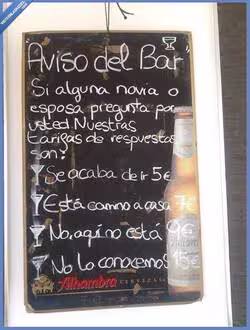 Aviso del Bar
Si alguna novia o
esposa pregunta por
usted. Nuestras
tarifas de respuestas
son:
Se acaba de ir 5€
Está camino a casa 7€
No, aquí no está 9€
No lo conocemos 15€
Alhambra CERVEZAS